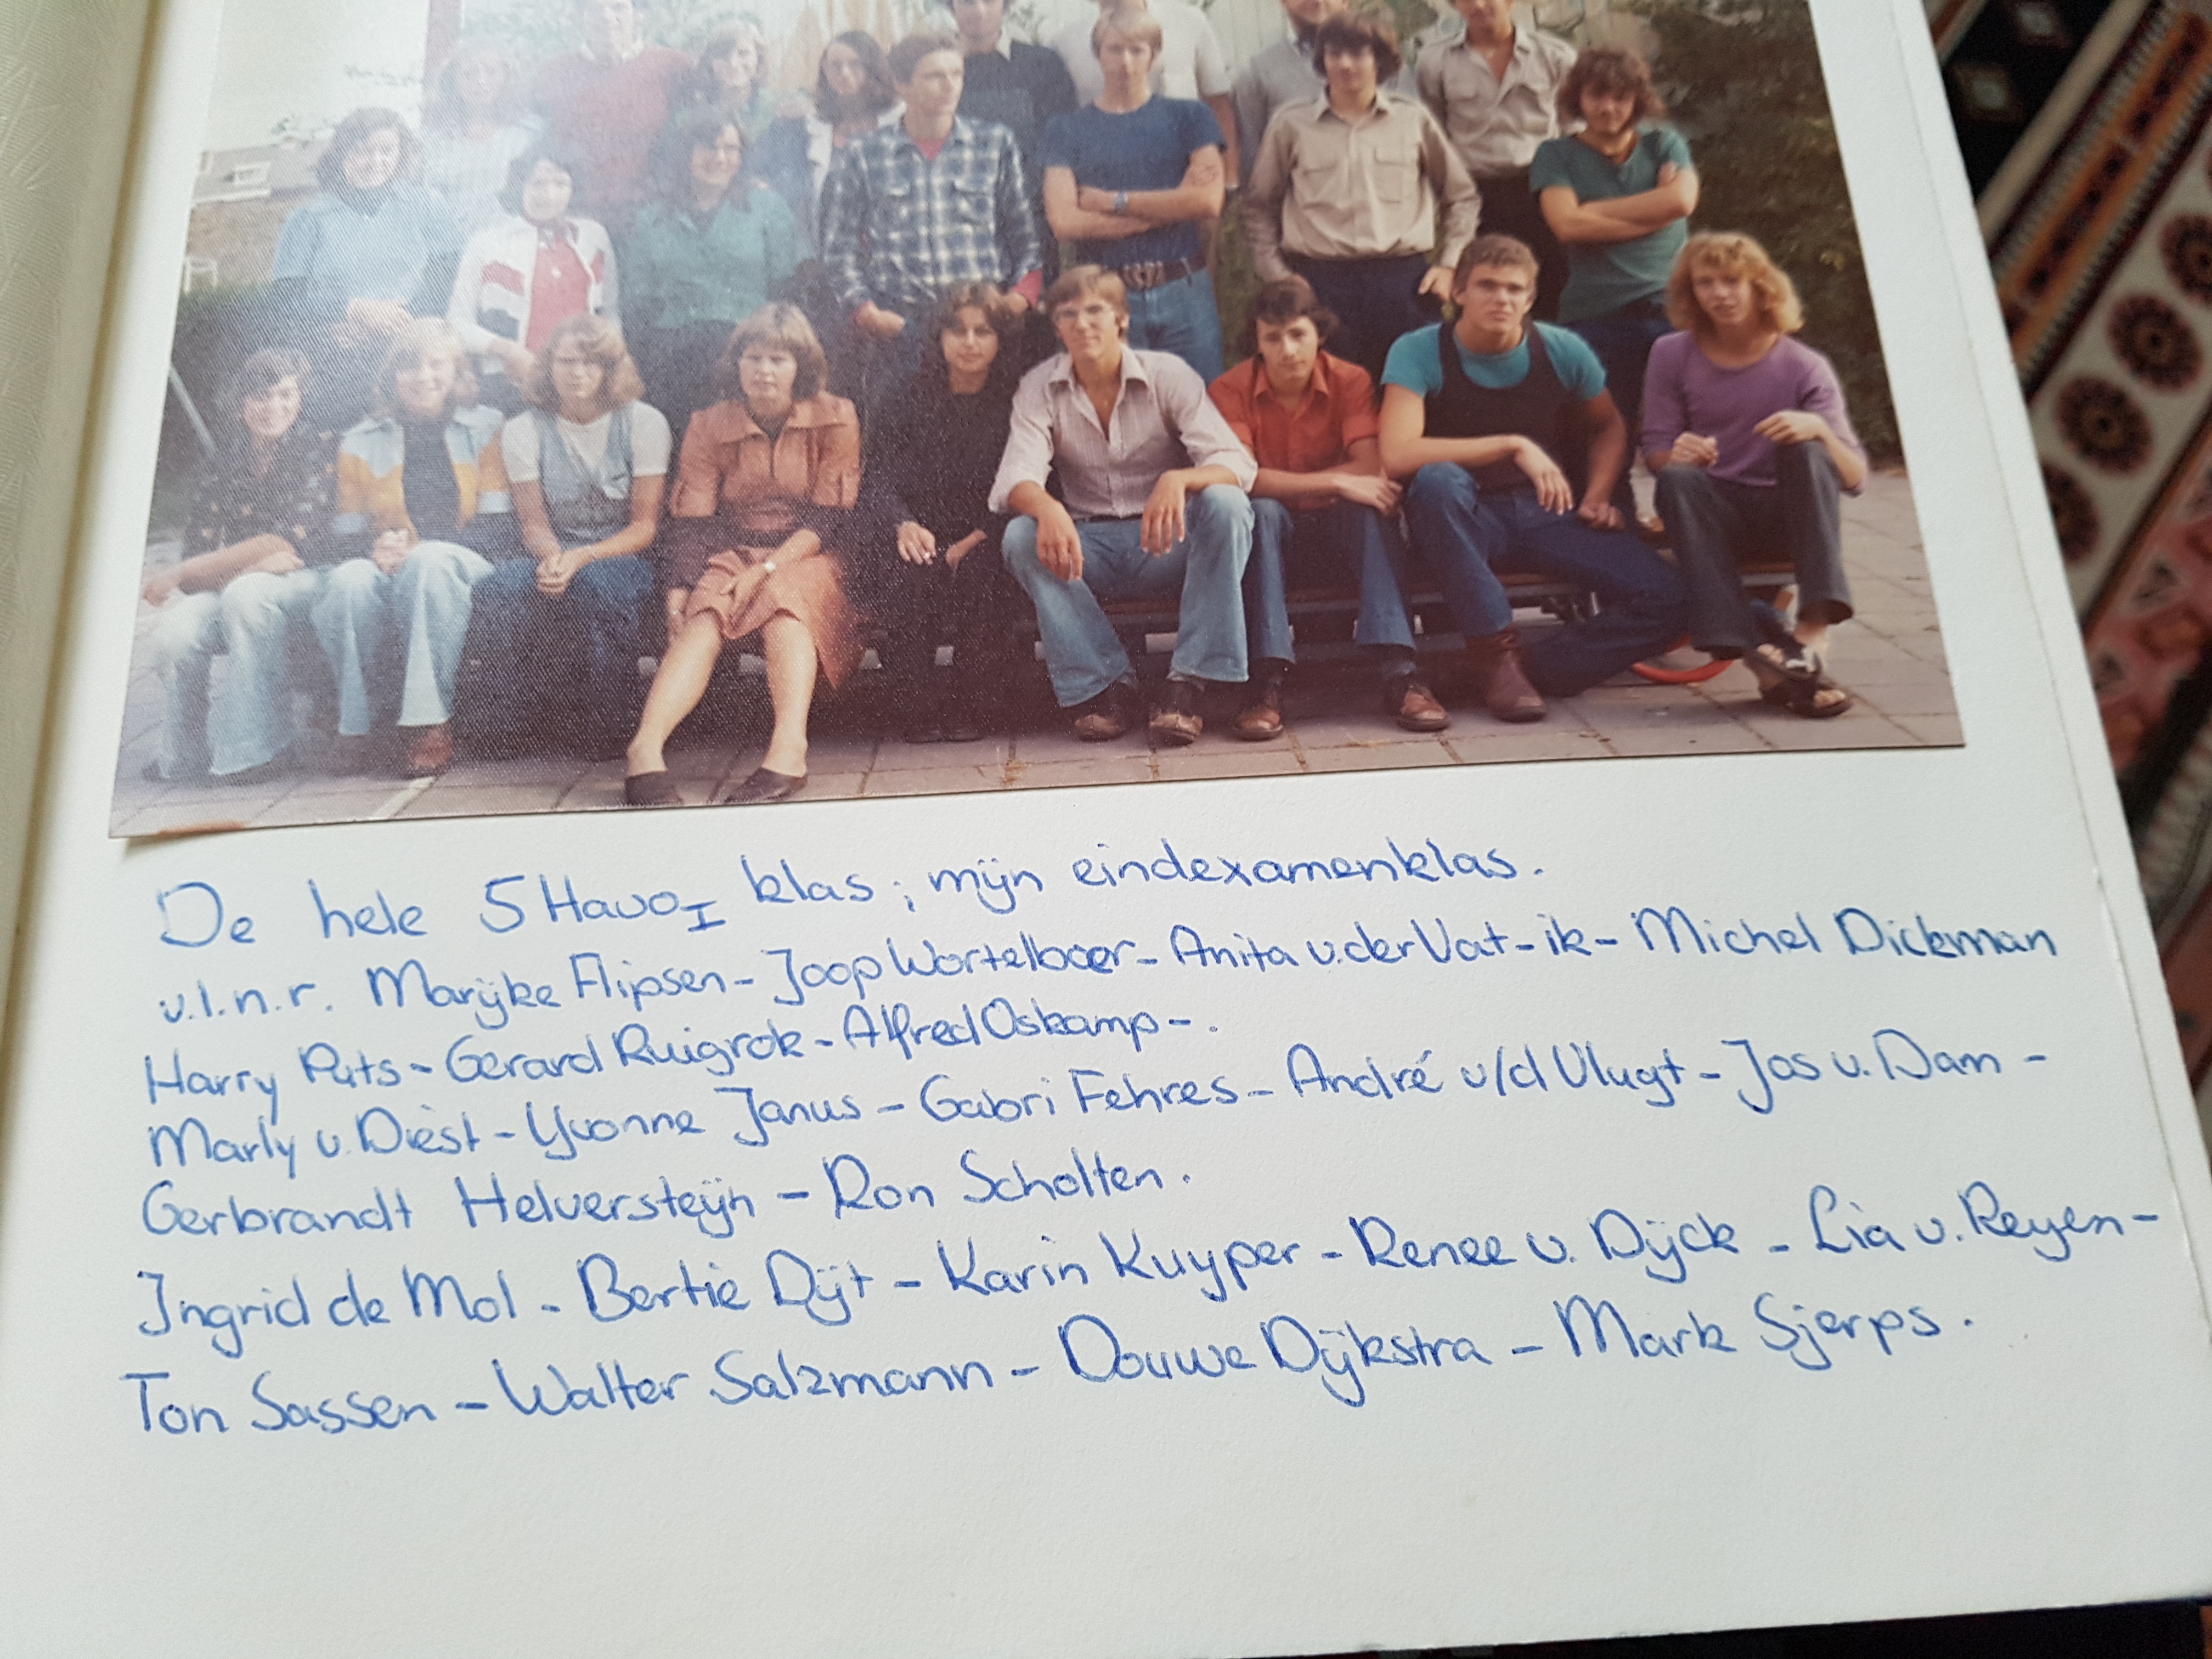 De hele 5 Havo I klas; mijn eindexamenklas.
v.l.n.r. Marijke Flipsen - Joop Wortelboer - Anita v.der Vat - ik - Michel Dickman
Harry Puts - Gerard Ruigrok - Alfred Oskamp - .
Marly v. Diest - Yvonne Janus - Gabri Fehres - André v/d Vlugt - Jos v. Dam -
Gerbrandt Helversteijn - Ron Scholten.
Ingrid de Mol - Bertie Dijt - Karin Kuyper - Renee v. Dijck - Lia v. Reyen -
Ton Sassen - Walter Salzmann - Douwe Dijkstra - Mark Sjerps.